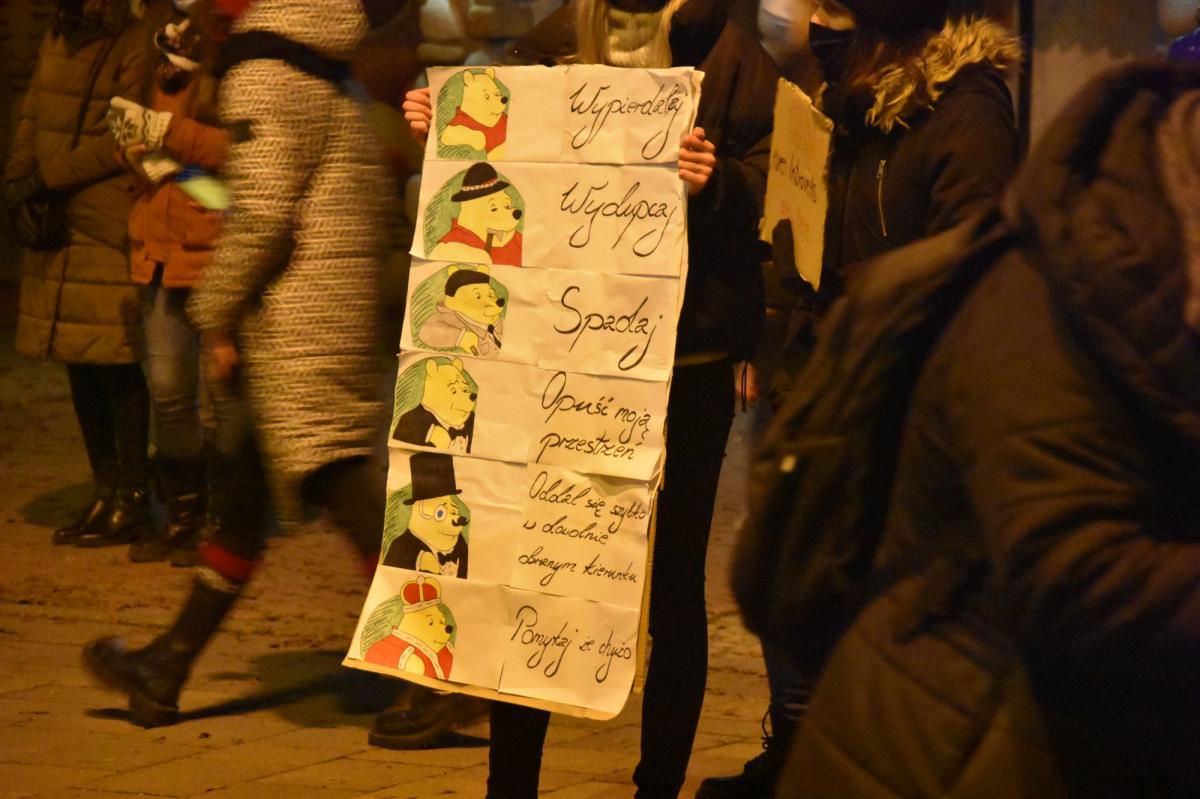 Wypierdalaj
Wydupcaj
Spadaj
Opuść moją
przestrzeń
Oddal się szybko
w dowolnie
obranym kierunku
Pomykaj że chyżo
Introverts